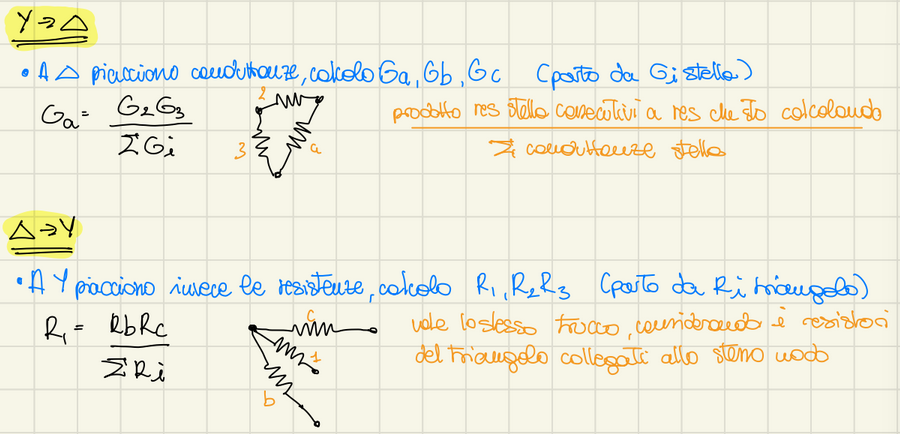 Y → △
• A △ piacciono conduttanze, calcolo Ga, Gb, Gc (parto da Gi stella)
Ga = G2G3 / ΣGi
2
3
a
prodotto res stella consecutivi a res che sto calcolando
Σ conduttanze stella
△ → Y
• A Y piacciono invece le resistenze, calcolo R1, R2 R3 (parto da Ri triangolo)
R1 = RbRc / ΣRi
c
1
b
vale lo stesso trucco, considerando i resistori
del triangolo collegati allo stesso nodo